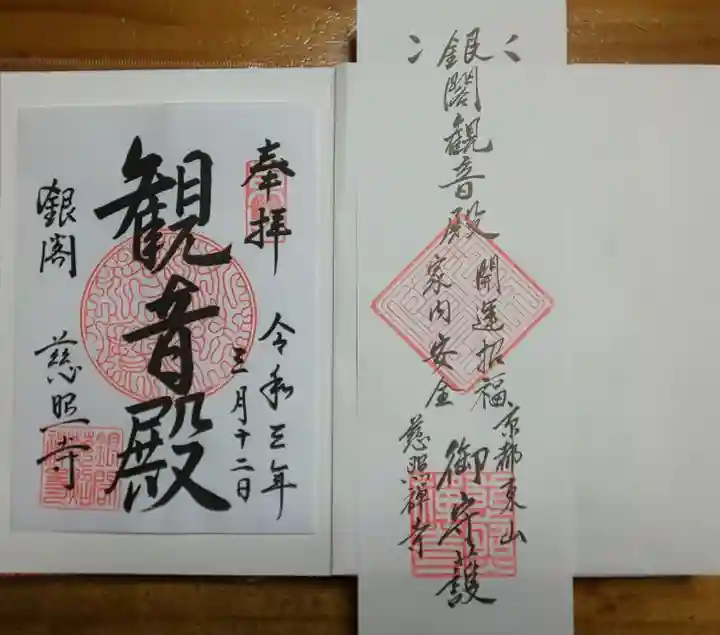 奉拝
令和三年
三月十二日
観音殿
銀閣 慈照寺
銀閣観音殿
開運招福
家内安全
京都東山
御守護
慈照禅寺